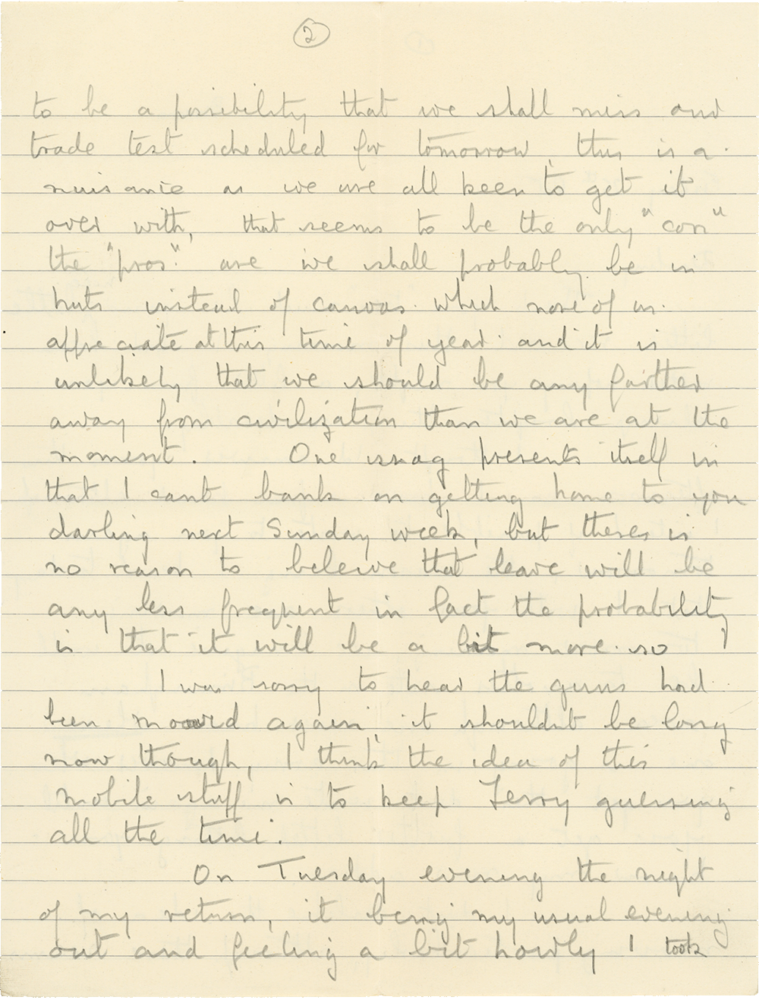 2
to be a possibility that we shall miss our
trade test scheduled for tomorrow, this is a
nuisance as we are all keen to get it
over with, that seems to be the only "con"
the "pros" are we shall probably be in
huts instead of canvas which none of us
appreciate at this time of year and it is
unlikely that we should be any farther
away from civilization than we are at the
moment. One snag presents itself in
that I cant bank on getting home to you
darling next Sunday week, but theres is
no reason to beleive that leave will be
any less frequent in fact the probability
is that it will be a bit more so
I was sorry to hear the guns had
been moved again, it shouldnt be long
now though, I think the idea of this
mobile stuff is to keep Jerry guessing
all the time.
On Tuesday evening the night
of my return, it being my usual evening
out and feeling a bit howly I took